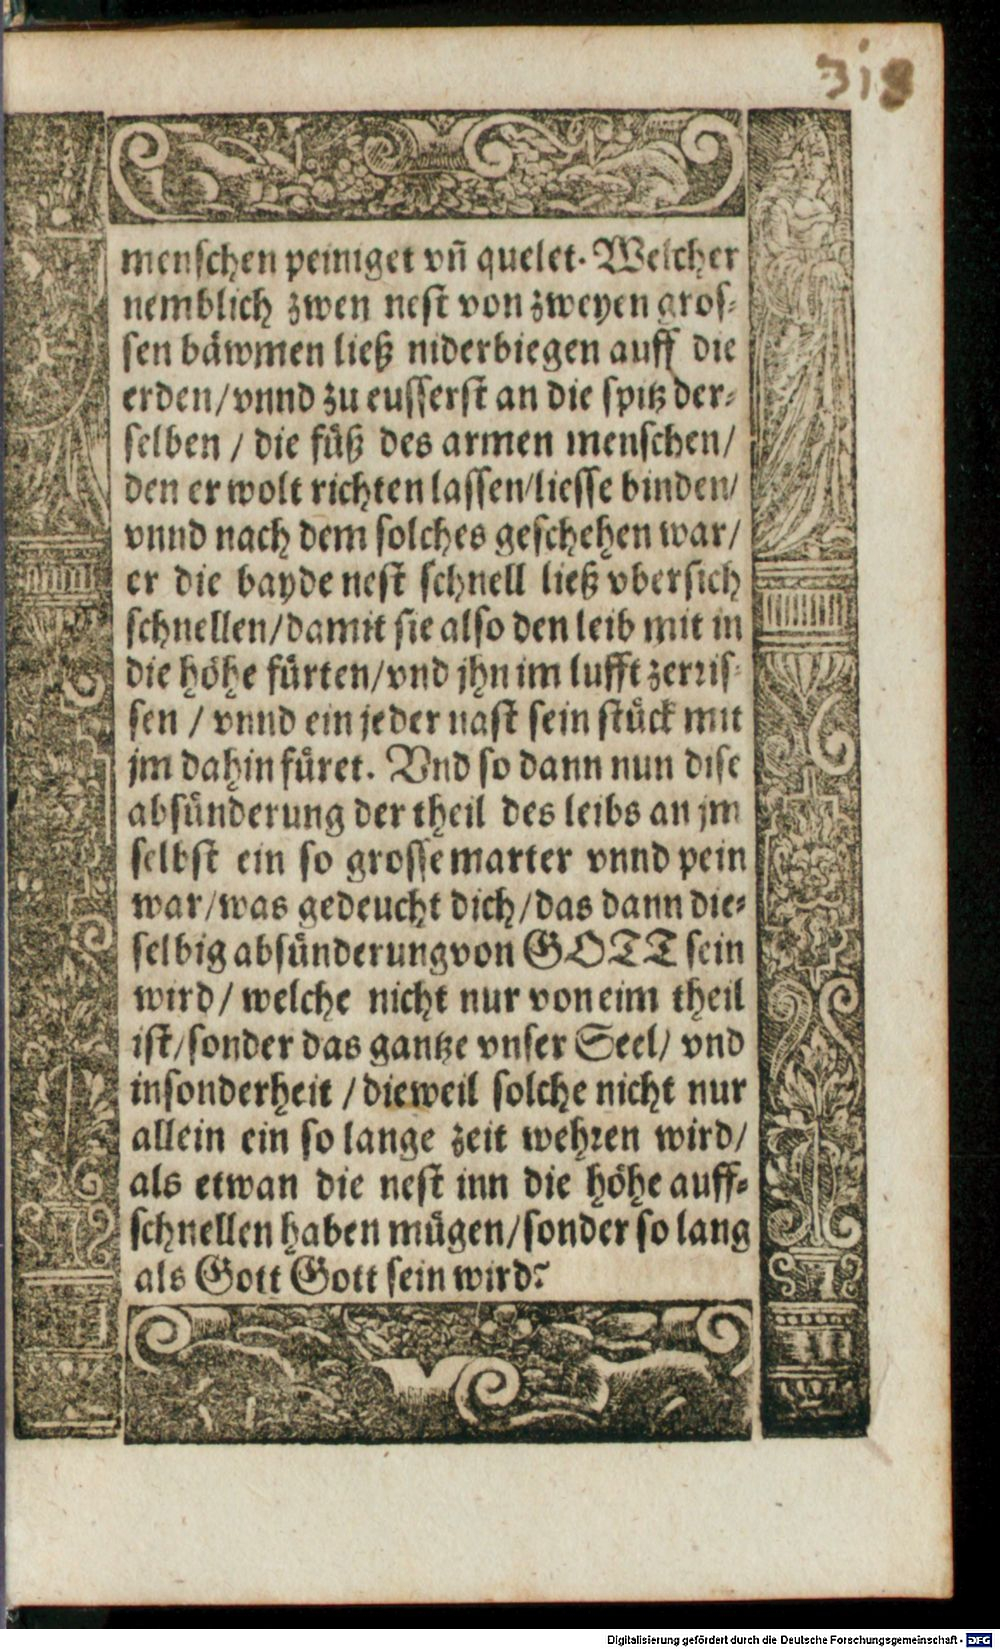 318
menschen peiniget vñ quelet. Welcher
nemblich zwen nest von zweyen gros-
sen bäwmen ließ niderbiegen auff die
erden/vnnd zu eusserst an die spitz der-
selben / die füß des armen menschen/
den er wolt richten lassen/liesse binden/
vnnd nach dem solches geschehen war/
er die bayde nest schnell ließ vbersich
schnellen/damit sie also den leib mit in
die höhe fürten/vnd jhn im lufft zerris-
sen / vnnd ein jeder nast sein stück mit
jm dahin füret. Vnd so dann nun dise
absünderung der theil des leibs an jm
selbst ein so grosse marter vnnd pein
war/was gedeucht dich/das dann die-
selbig absünderung von GOTT sein
wird/ welche nicht nur von eim theil
ist/sonder das gantze vnser Seel/ vnd
insonderheit /dieweil solche nicht nur
allein ein so lange zeit wehren wird/
als etwan die nest inn die höhe auff-
schnellen haben mügen/sonder so lang
als Gott Gott sein wird?
Digitalisierung gefördert durch die Deutsche Forschungsgemeinschaft - DFG